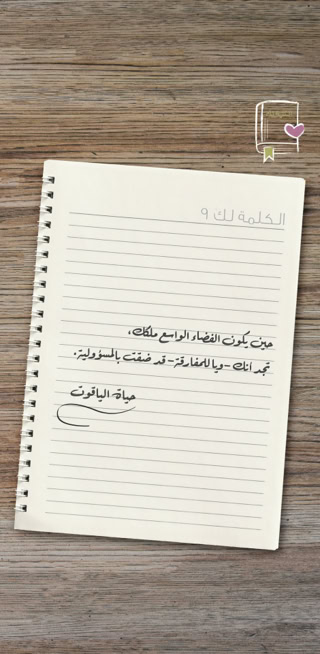 الكلمة لك ٩
حين يكون الفضاء الواسع ملكك،
تجد أنك -ويا للمفارقة- قد ضقت بالمسؤولية.
حياة الياقوت